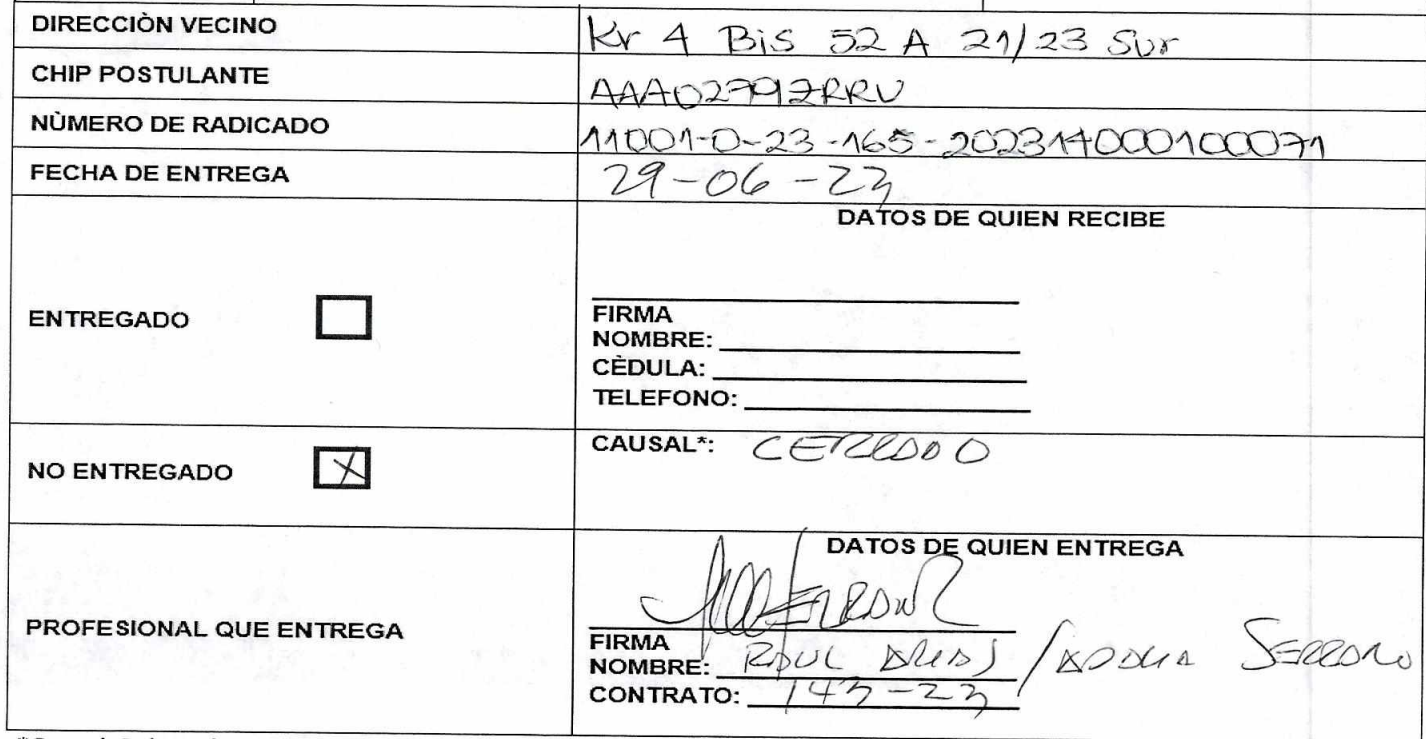 DIRECCIÒN VECINO Kr 4 Bis 52 A 21/23 Sur
CHIP POSTULANTE AAA0279ZRRU
NÙMERO DE RADICADO 11001-0-23-165-202314000100071
FECHA DE ENTREGA 29-06-23
DATOS DE QUIEN RECIBE
ENTREGADO
FIRMA
NOMBRE:
CÈDULA:
TELEFONO:
NO ENTREGADO X
CAUSAL*: CERRADO
DATOS DE QUIEN ENTREGA
PROFESIONAL QUE ENTREGA
FIRMA
NOMBRE: RAUL ARIAS / Serrano
CONTRATO: 143-23